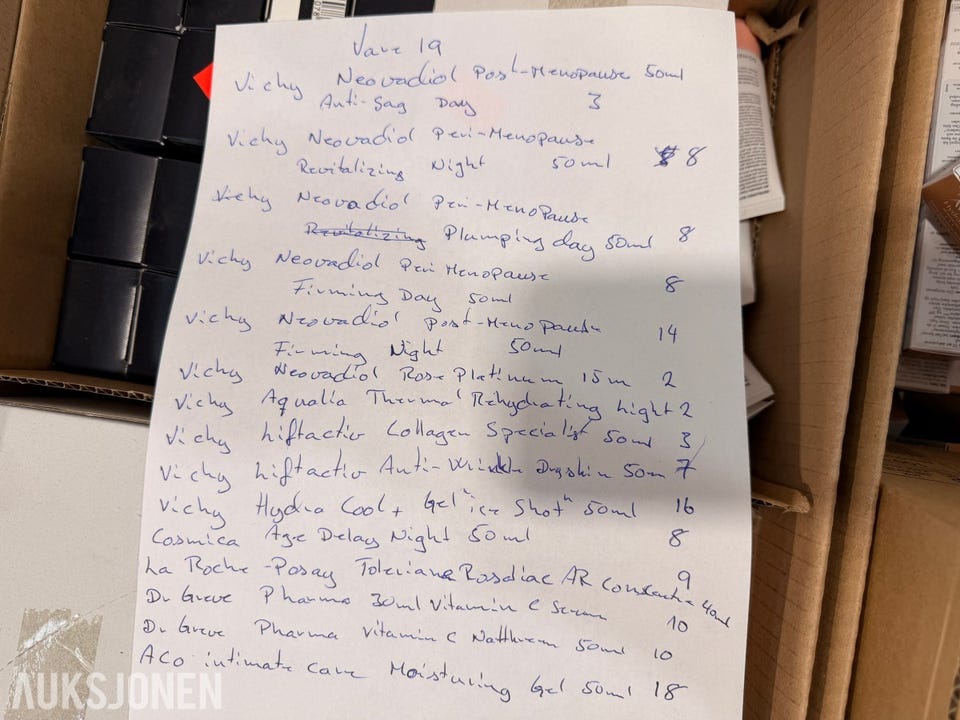 Vare 19
Vichy Neovadiol Post-Menopause 50ml
Anti-Sag Day 3
Vichy Neovadiol Peri-Menopause
Revitalizing Night 50ml 8
Vichy Neovadiol Peri-Menopause
Revitalizing Plumping day 50ml 8
Vichy Neovadiol Peri Menopause
Firming Day 50ml 8
Vichy Neovadiol Post-Menopause 14
Firming Night 50ml
Vichy Neovadiol Rose Platinum 15m 2
Vichy Aqualia Thermal Rehydrating Light 2
Vichy Liftactiv Collagen Specialist 50ml 3
Vichy Liftactiv Anti-Wrinkle Dryskin 50m 7
Vichy Hydra Cool + Gel "ice Shot" 50ml 16
Cosmica Age Delay Night 50ml 8
La Roche-Posay Toleriane Rosaliac AR 40ml 9
Dr Greve Pharma 30ml Vitamin C Serum 10
Dr Greve Pharma Vitamin C Nattkrem 50ml 10
ACO intimate care Moisturing Gel 50ml 18
AUKSJONEN